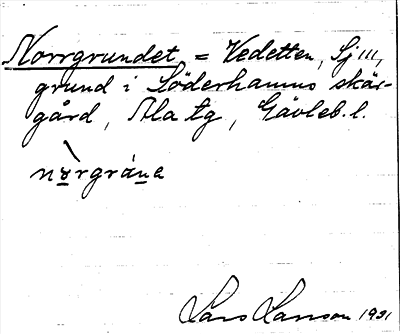 Norrgrundet = Vedetten, Sj III,
grund i Söderhamns skär-
gård, Ala tg, Gävleb. l.
Lars Larsson 1931